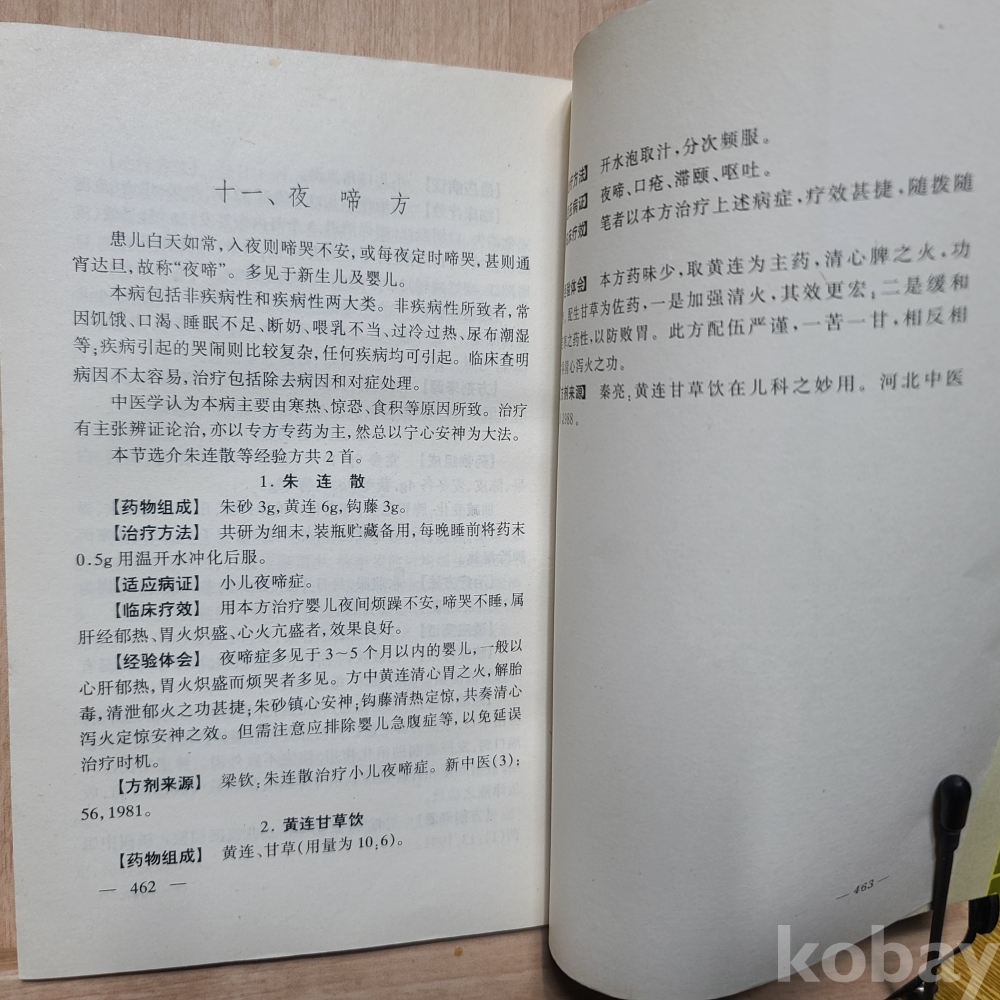 十一、夜 啼 方
患儿白天如常,入夜则啼哭不安,或每夜定时啼哭,甚则通
宵达旦,故称“夜啼”。多见于新生儿及婴儿。
本病包括非疾病性和疾病性两大类。非疾病性所致者,常
因饥饿、口渴、睡眠不足、断奶、喂乳不当、过冷过热、尿布潮湿
等;疾病引起的哭闹则比较复杂,任何疾病均可引起。临床查明
病因不太容易,治疗包括除去病因和对症处理。
中医学认为本病主要由寒热、惊恐、食积等原因所致。治疗
有主张辨证论治,亦以专方专药为主,然总以宁心安神为大法。
本节选介朱连散等经验方共2首。
1. 朱 连 散
【药物组成】 朱砂3g,黄连6g,钩藤3g。
【治疗方法】 共研为细末,装瓶贮藏备用,每晚睡前将药末
0.5g用温开水冲化后服。
【适应病证】 小儿夜啼症。
【临床疗效】 用本方治疗婴儿夜间烦躁不安,啼哭不睡,属
肝经郁热、胃火炽盛、心火亢盛者,效果良好。
【经验体会】 夜啼症多见于3~5个月以内的婴儿,一般以
心肝郁热,胃火炽盛而烦哭者多见。方中黄连清心胃之火,解胎
毒,清泄郁火之功甚捷;朱砂镇心安神;钩藤清热定惊,共奏清心
泻火定惊安神之效。但需注意应排除婴儿急腹症等,以免延误
治疗时机。
【方剂来源】 梁钦:朱连散治疗小儿夜啼症。新中医(3):
56,1981。
2. 黄连甘草饮
【药物组成】 黄连、甘草(用量为10:6)。
— 462 —
疗方法】 开水泡取汁,分次频服。
应病证】 夜啼、口疮、滞颐、呕吐。
床疗效】 笔者以本方治疗上述病症,疗效甚捷,随拨随
验体会】 本方药味少,取黄连为主药,清心脾之火,功
,配生甘草为佐药,一是加强清火,其效更宏;二是缓和
之药性,以防败胃。此方配伍严谨,一苦一甘,相反相
心泻火之功。
方剂来源】 秦亮:黄连甘草饮在儿科之妙用。河北中医
1988。
— 463 —
kobay